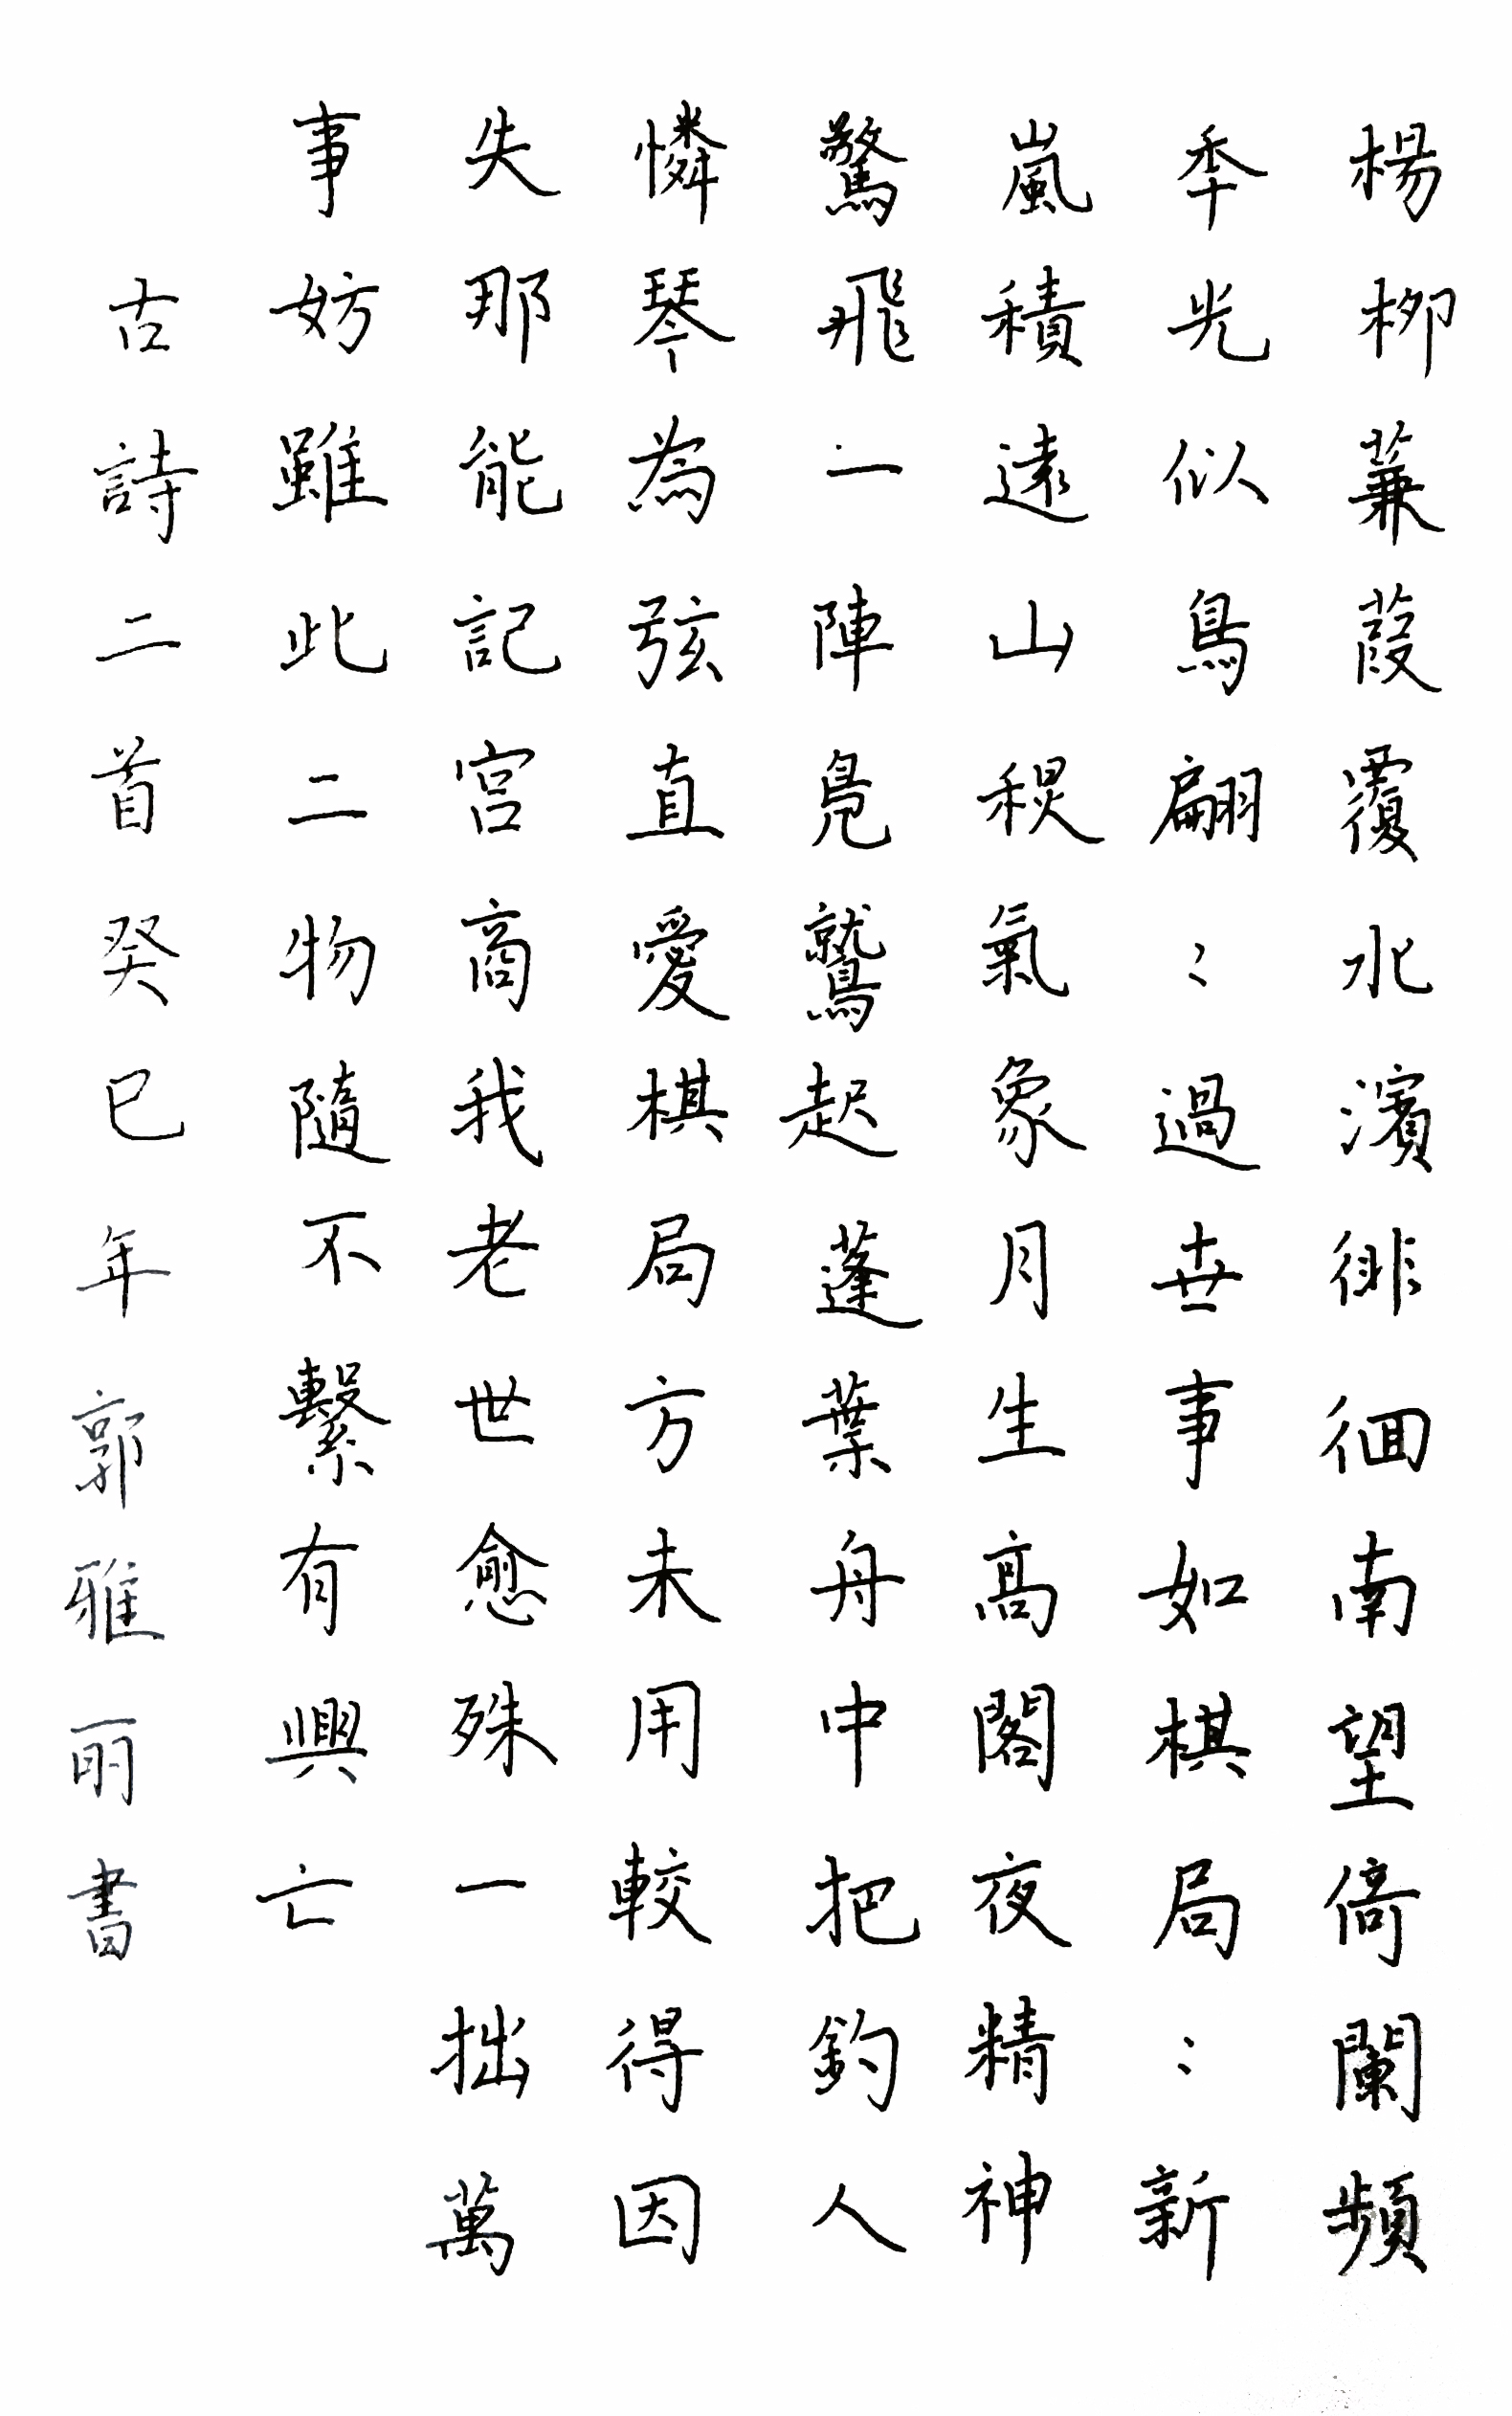 楊柳蒹葭覆水濱徘徊南望倚闌頻
秊光似鳥翩〻過世事如棋局〻新
嵐積遠山秋氣象月生高閣夜精神
驚飛一陣鳧鷖起蓬葉舟中把釣人
憐琴為弦直愛棋局方未用較得因
失那能記宮商我老世愈殊一拙萬
事妨雖此二物隨不繫有興亡
古詩二首癸巳年郭雅丽書